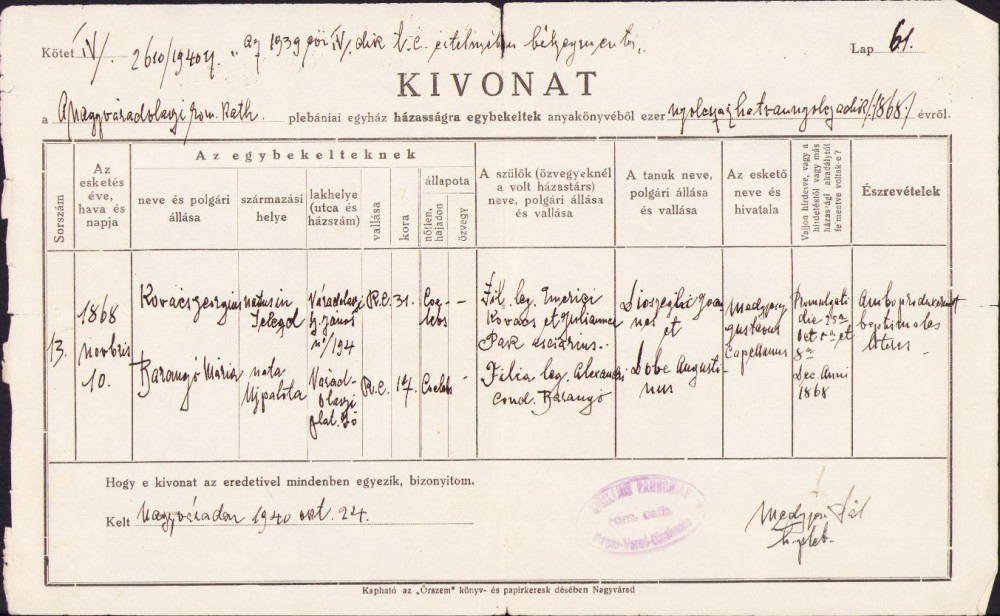 Kötet IV/. 2610/1940 „az 1939 évi IV/dik t.c. értelmében bélyegmentes„ Lap 61.
KIVONAT
a nagyváradolaszi rom. kath. plebániai egyház házasságra egybekeltek anyakönyvéből ezer nyolcszázhatvannyolcadik /:1868:/ évről.
Sorszám
Az esketés éve, hava és napja
Az egybekelteknek
neve és polgári állása
származási helye
lakhelye (utca és házszám)
vallása
kora
állapota
nőtlen, hajadon
özvegy
A szülők (özvegyeknél a volt házastárs) neve, polgári állása és vallása
A tanuk neve, polgári állása és vallása
Az eskető neve és hivatala
Vajjon hirdetve, vagy a hirdetéstől vagy más házas-ági akadálytól fe mentve voltak-e?
Észrevételek
13.
1868 novbris 10.
Kovács Georgius
natus in Telegd
Váradolaszi
No 194
R.C.
31.
Coelebs
-
Fil. leg. Emerici Kovács et Julianna Pak
Dioszeghi Joannes et
Medgyesy Gustavus Capellanus
Promulgati die 25a Oct 1a et 8a
Anni 1868
Ambo produxerunt baptismales literas
Baranyó Mária
nata Ujpalota
Váradolaszi
R.C.
17.
Coelebs
-
Filia leg. Alexandri cond. Baranyó
Dobe Augustinus
Hogy e kivonat az eredetivel mindenben egyezik, bizonyitom.
Kelt Nagyváradon 1940 okt. 24.
rom. cath.
Medgyesi Pál
h. pleb.
Kapható az „Őrszem" könyv- és papirkeresk désében Nagyvárad